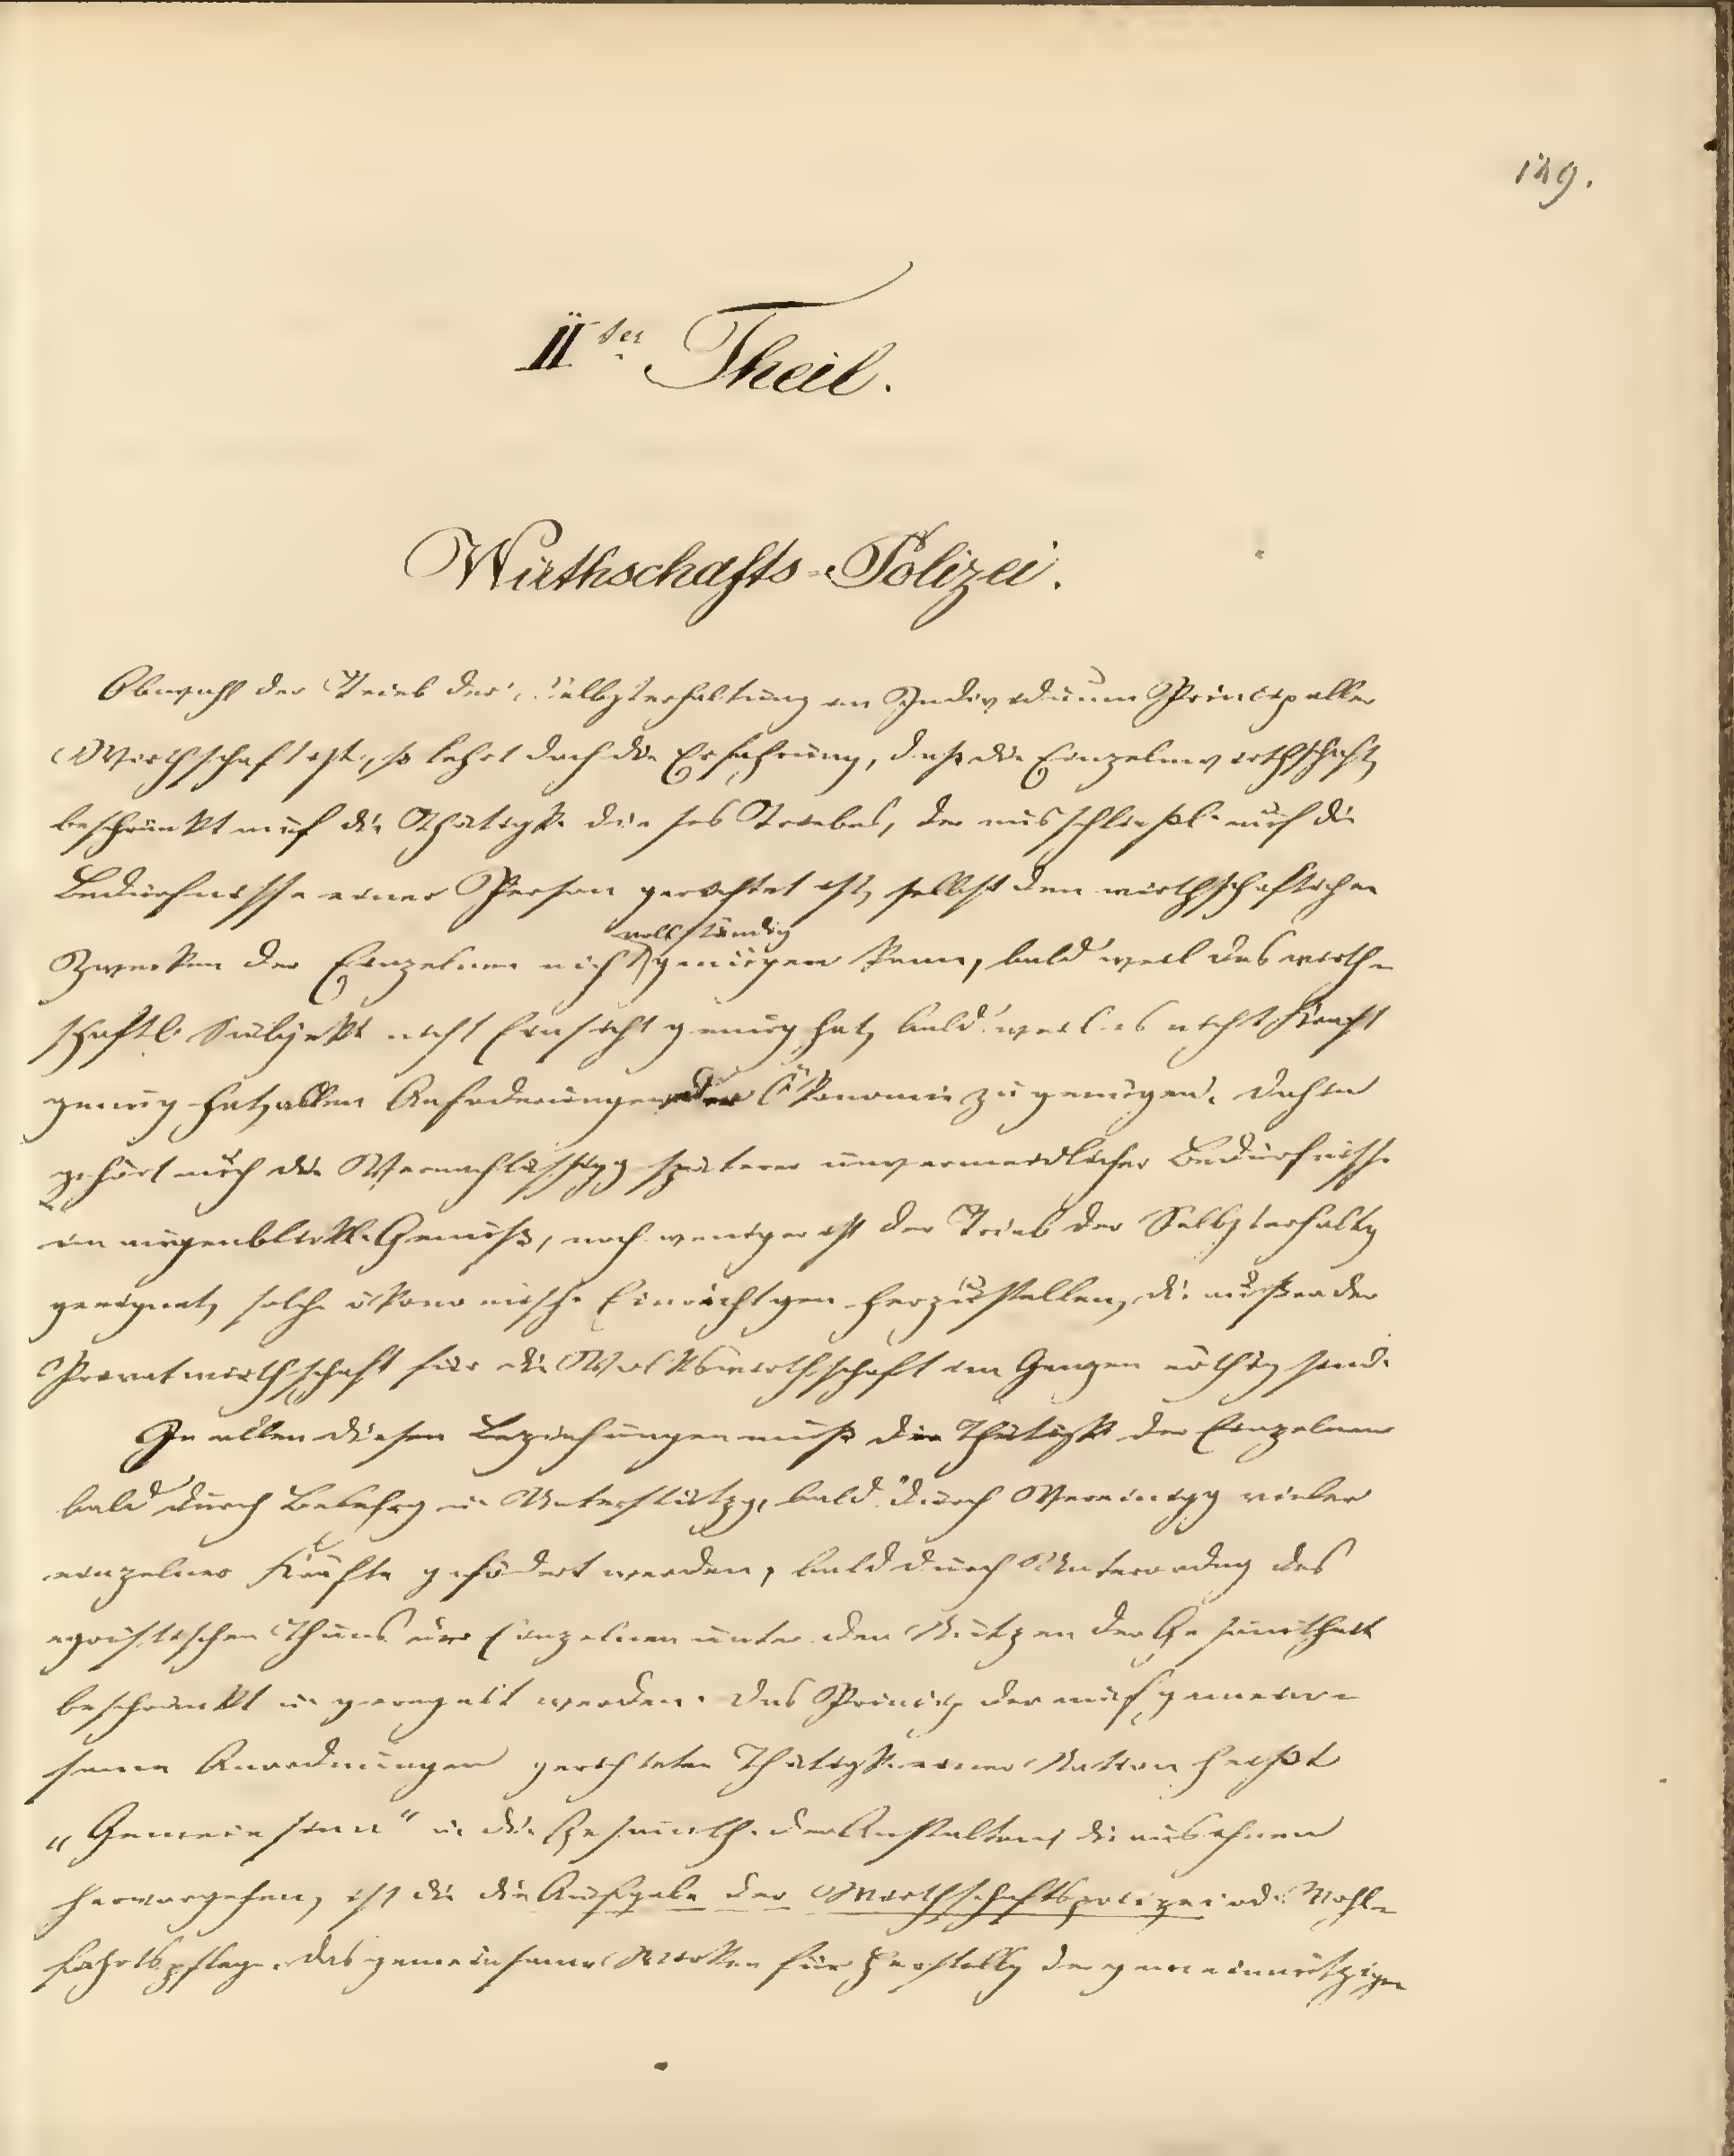 149.
IIter Theil.
Wirthschafts-Polizei.
Obwohl der Trieb der Selbsterhaltung im Individuum Princip aller
Wirthschaft ist, so lehrt doch die Erfahrung, daß die Einzelnwirthschaft,
beschränkt auf die Thätigk. dieses Triebes, der ausschließl. auf die
Bedürfnisse einer Person gerichtet ist, selbst den wirthschaftlichen
Zwecken der Einzelnen nicht vollständig genügen kann, bald weil das wirth-
schaftl. Subjekt nicht Einsicht genug hat, bald weil es nicht Kraft
genug hat, allen Anforderungen der Ökonomie zu genügen. Dahin
gehört auch die Vernachlässigg späterer unvermeidlicher Bedürfnisse
im augenblickl. Genuß, noch weniger ist der Trieb der Selbsterhaltg
geeignet, solche ökonomische Einrichtgen herzustellen, die außer der
Privatwirthschaft für die Volkswirthschaft im Ganzen nöthig sind.
In allen diesen Beziehungen muß die Thätigk. der Einzelnen
bald durch Belehrg u. Unterstützg, bald durch Vereinigg vieler
einzelner Kräfte gefördert werden, bald durch Unterordng des
egoistischen Thuns der Einzelnen unter den Nutzen der Gesammtheit
beschränkt u. geregelt werden. Das Princip der auf gemein-
same Anordnungen gerichteten Thätigk. einer Nation heißt
„Gemeinsinn" u. die Gesammth. der Anstalten, die aus ihnen
hervorgehen, ist die die Aufgabe der Wirthschaftspolizei od. Wohl-
fahrtspflege. Das gemeinsame Wirken für Herstellg der gemeinnützigen